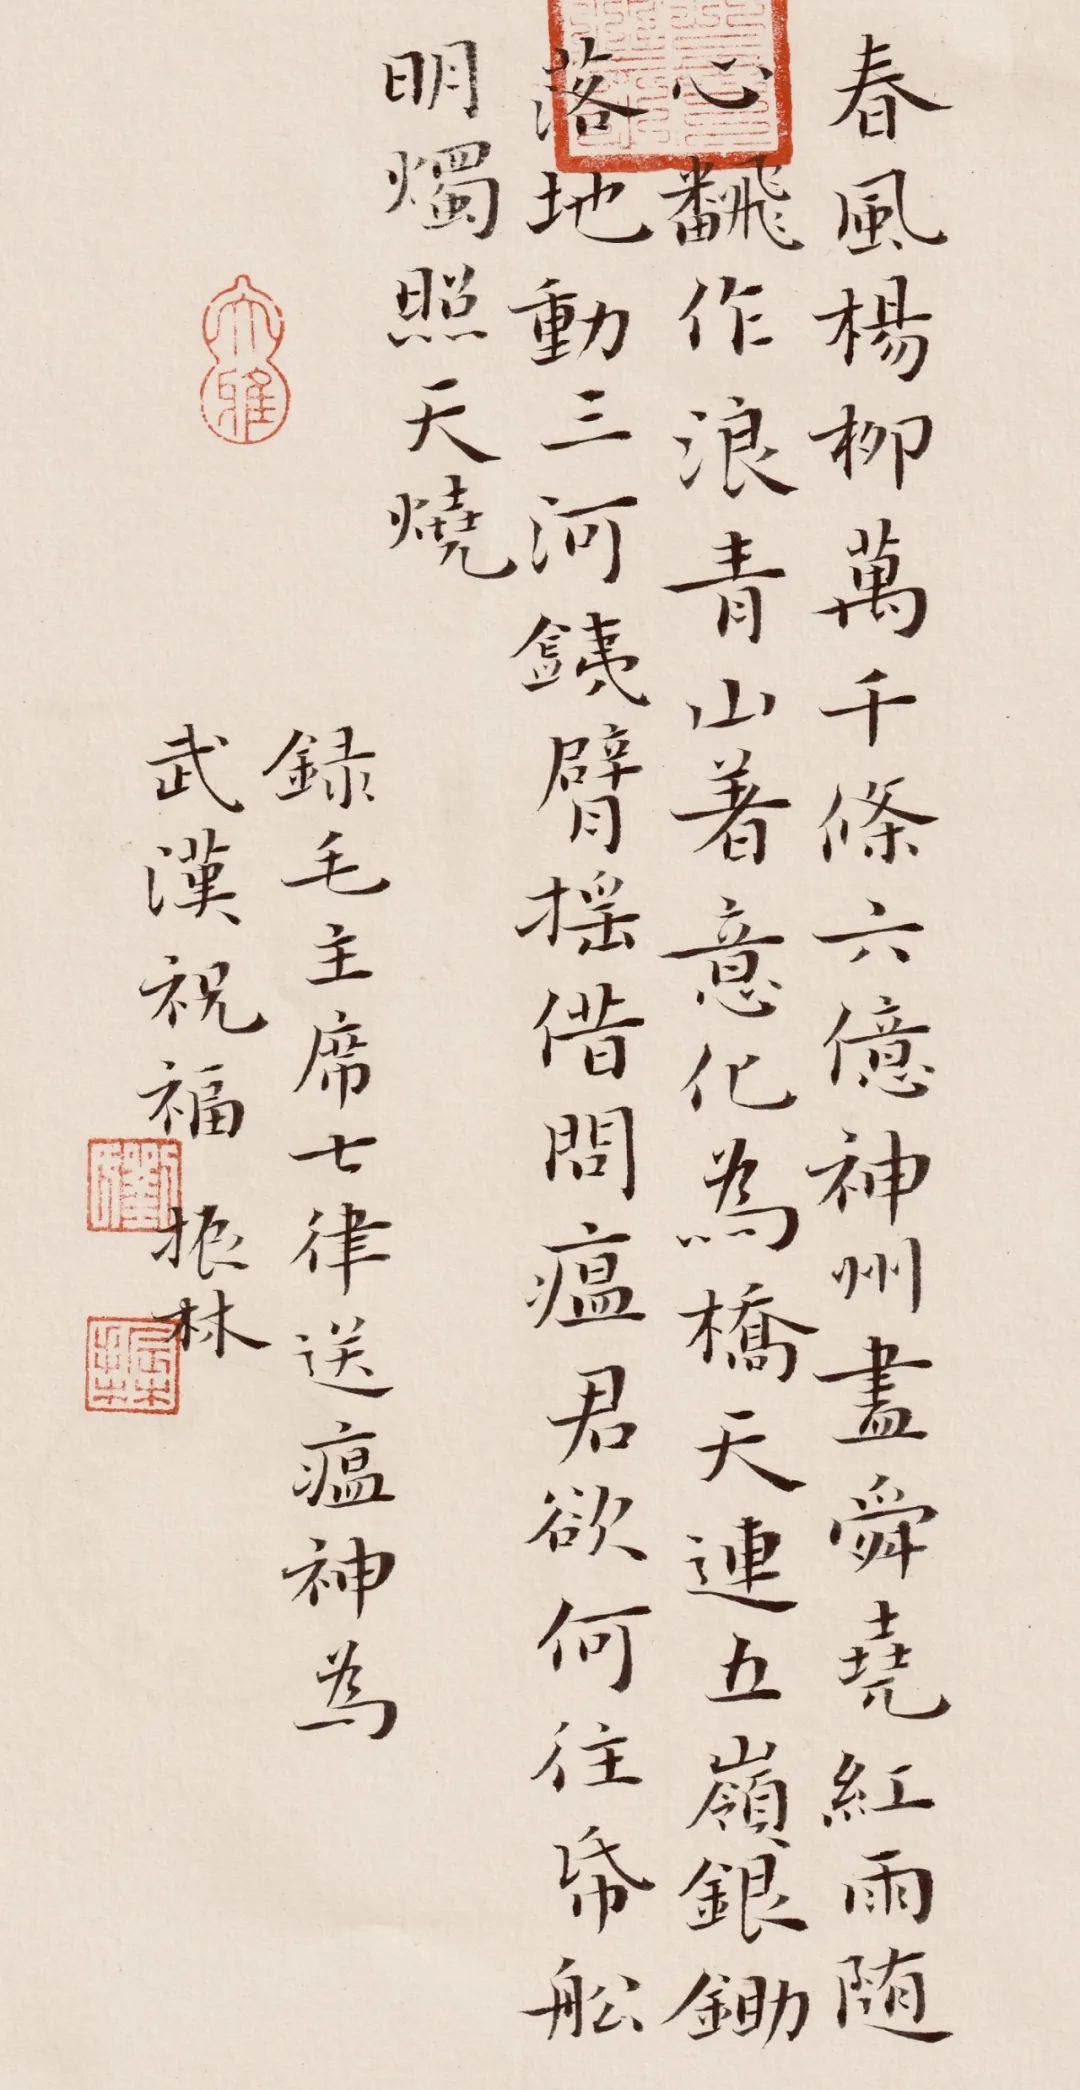 春風楊柳萬千條六億神州盡舜堯紅雨随
心飜作浪青山著意化為橋天連五嶺銀鋤
落地動三河銕臂摇借問瘟君欲何往帋舩
明燭照天燒
大雅
録毛主席七律送瘟神為
武漢祝福 振林